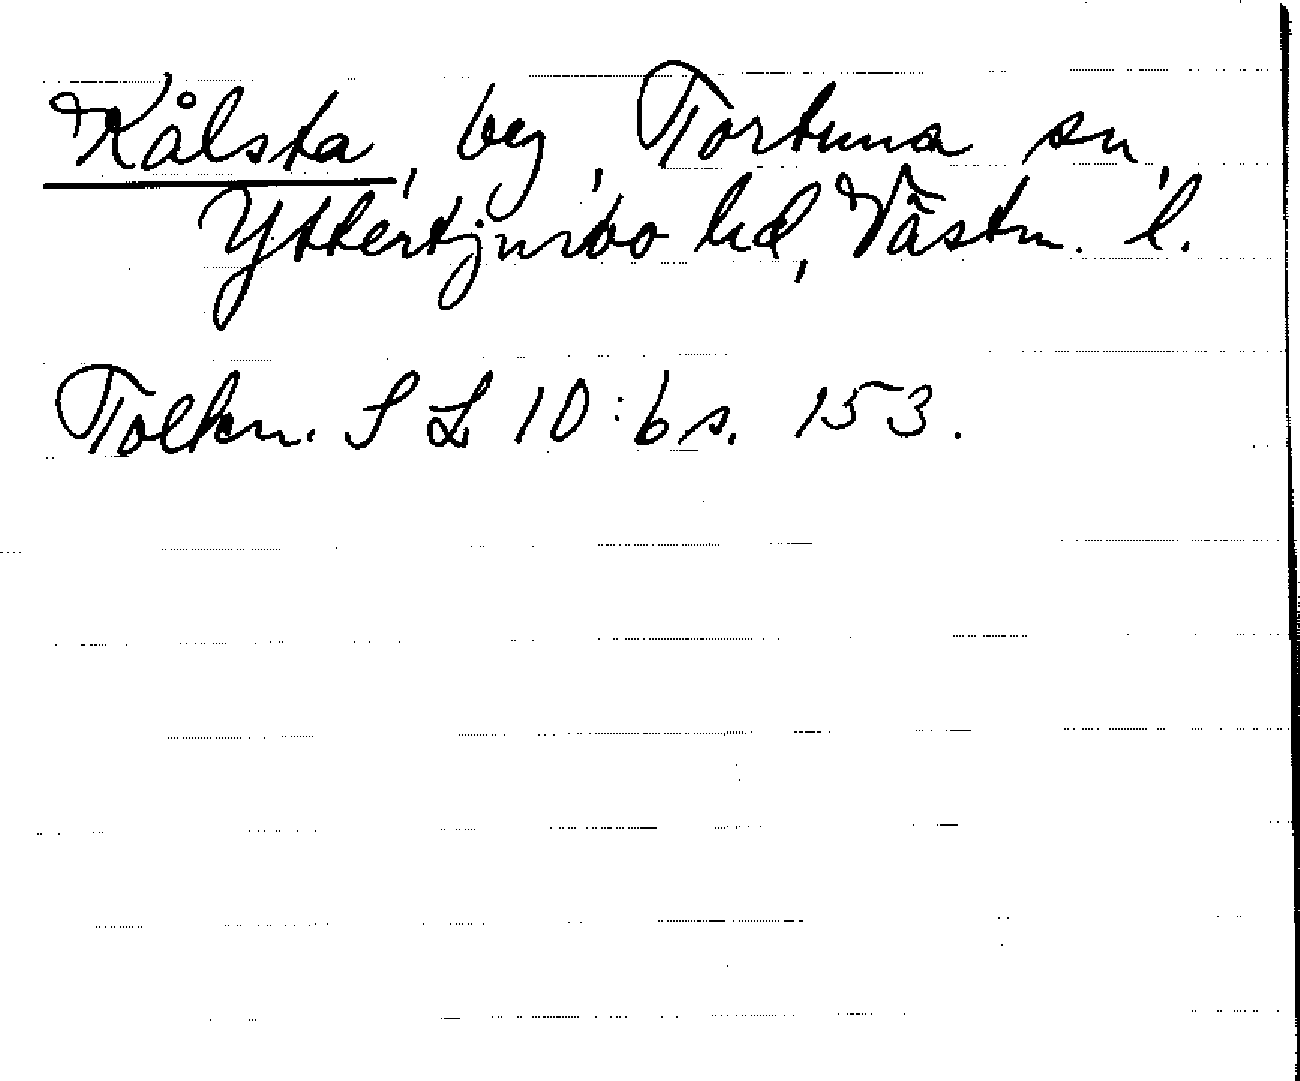 Kålsta, by, Tortuna sn,
Yttertjurbo hd, Västm. l.
Tolkn. SL 10:6 s. 153.